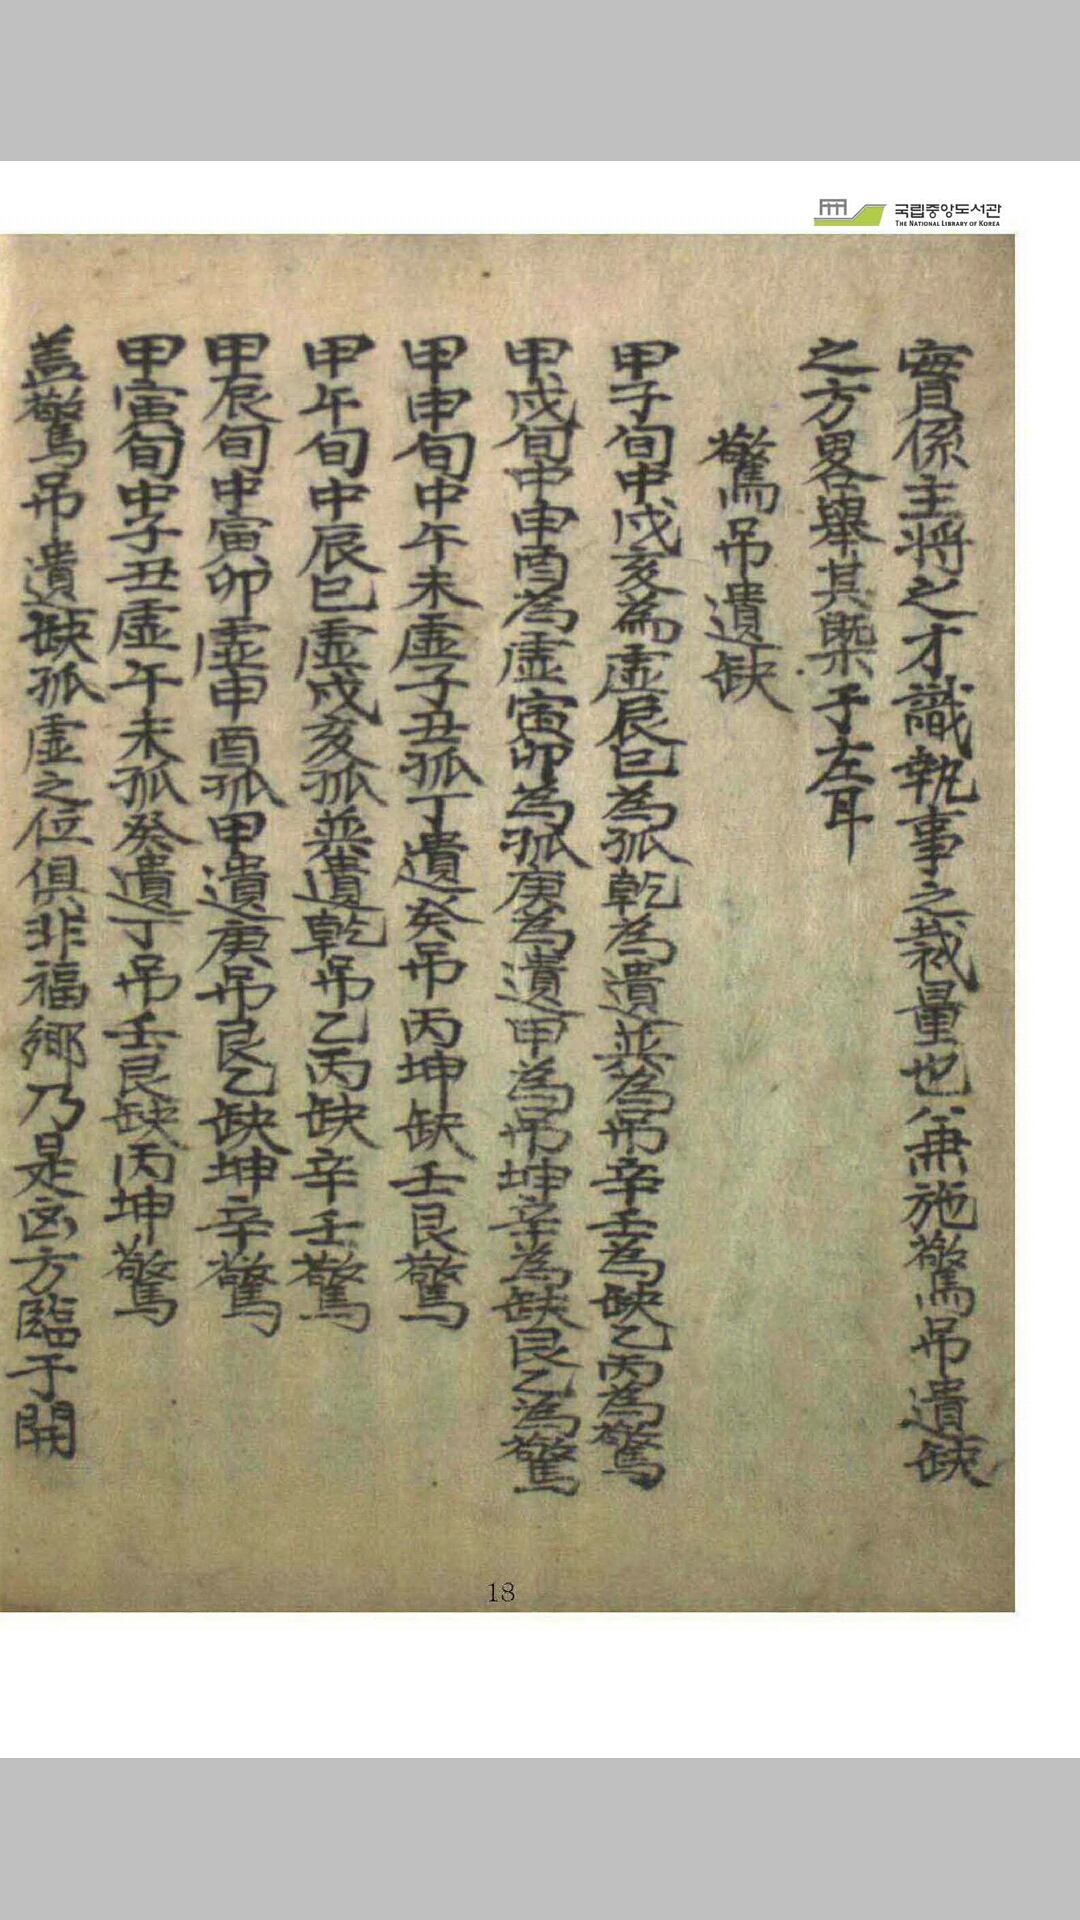 국립중앙도서관
THE NATIONAL LIBRARY OF KOREA
實係主將之才識執事之裁量也公兼施驚吊遺缺
之方畧擧其槩于左耳
驚吊遺缺
甲子旬中戌亥為虛辰巳為孤乾為遺巽為吊辛壬為缺乙丙為驚
甲戌旬中申酉為虛寅卯為孤庚為遺甲為吊坤辛為缺艮乙為驚
甲申旬中午未虛子丑孤丁遺癸吊丙坤缺壬艮驚
甲午旬中辰巳虛戌亥孤巽遺乾吊乙丙缺辛壬驚
甲辰旬中寅卯虛申酉孤甲遺庚吊艮乙缺坤辛驚
甲寅旬中子丑虛午未孤癸遺丁吊壬艮缺丙坤驚
盖驚吊遺缺孤虛之位俱非福鄉乃是凶方臨于開
18